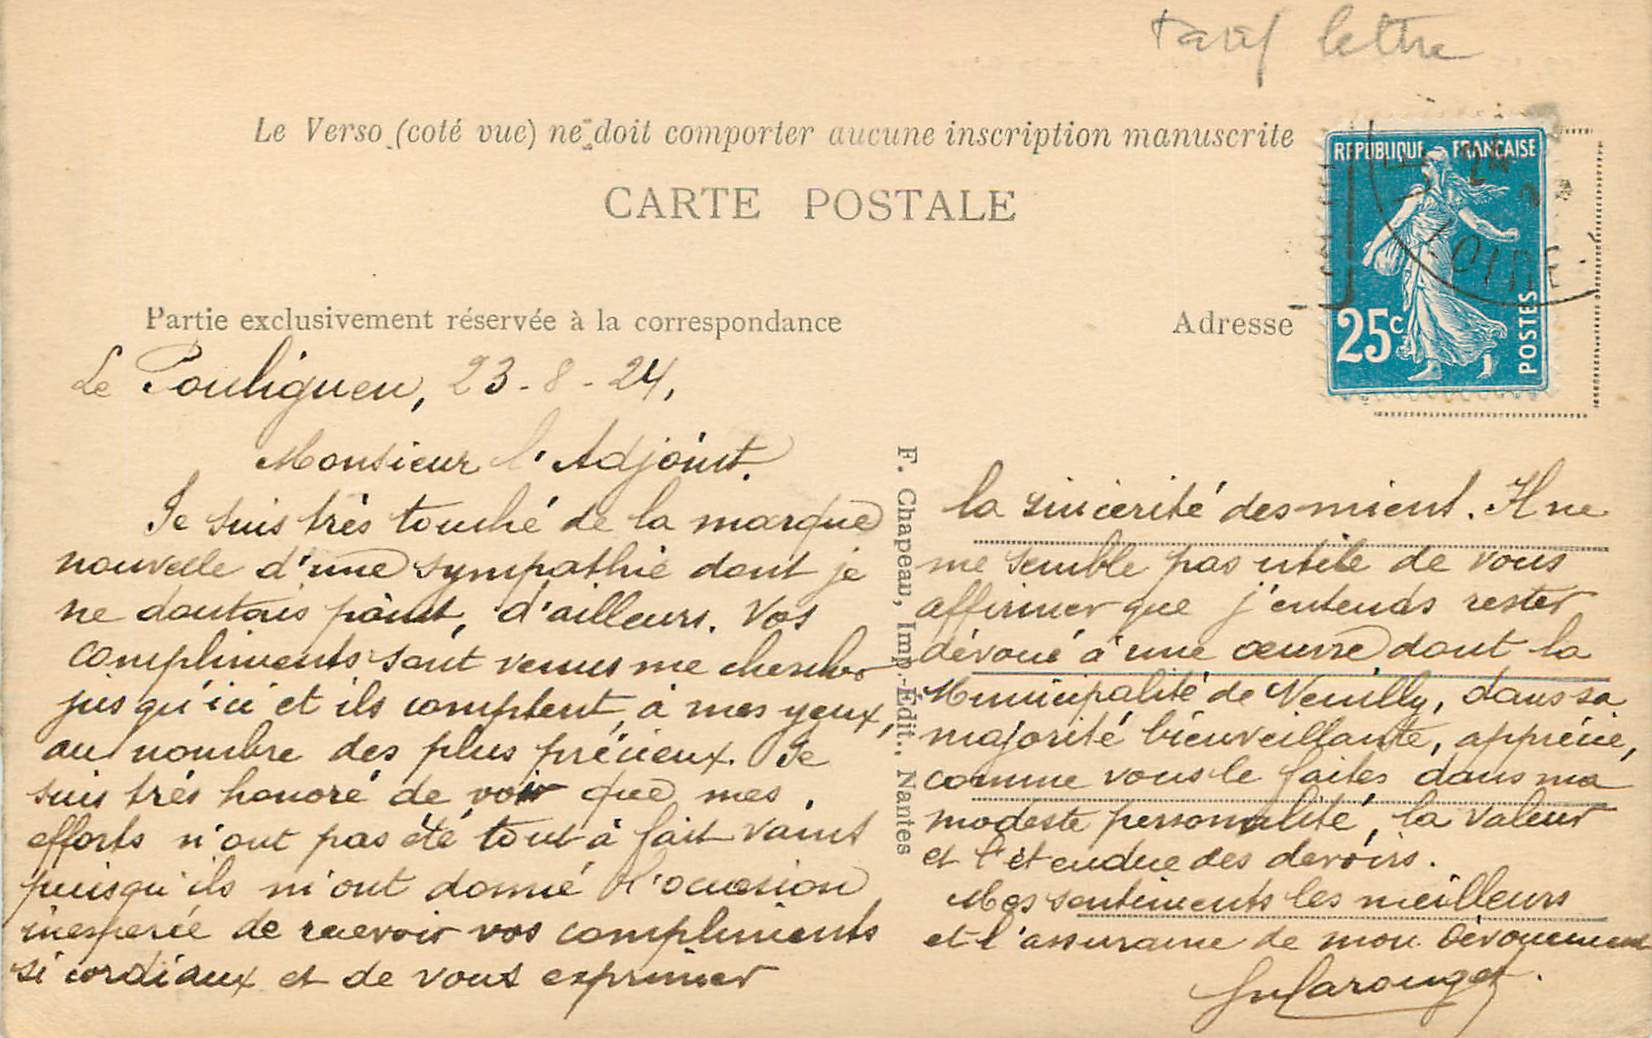 tarif lettre
Le Verso (coté vue) ne doit comporter aucune inscription manuscrite
CARTE POSTALE
REPUBLIQUE FRANÇAISE
24
LOIRE
25c
POSTES
Partie exclusivement réservée à la correspondance
Adresse
Le Pouliguen, 23-8-24,
Monsieur l'Adjoint.
Je suis très touché de la marque
nouvelle d'une sympathie dont je
ne doutais point, d'ailleurs. Vos
compliments sont venus me chercher
jusqu'ici et ils comptent, à mes yeux,
au nombre des plus précieux. Je
suis très honoré de voir que mes
efforts n'ont pas été tout à fait vains
puisqu'ils m'ont donné l'occasion
inespérée de recevoir vos compliments
si cordiaux et de vous exprimer
F. Chapeau, Imp.-Édit., Nantes
la sincérité des miens. Il ne
me semble pas utile de vous
affirmer que j'entends rester
dévoué à une œuvre dont la
Municipalité de Neuilly, dans sa
majorité bienveillante, apprécie,
comme vous le faites dans ma
modeste personnalité, la valeur
et l'étendue des devoirs.
Mes sentiments les meilleurs
et l'assurance de mon dévouement